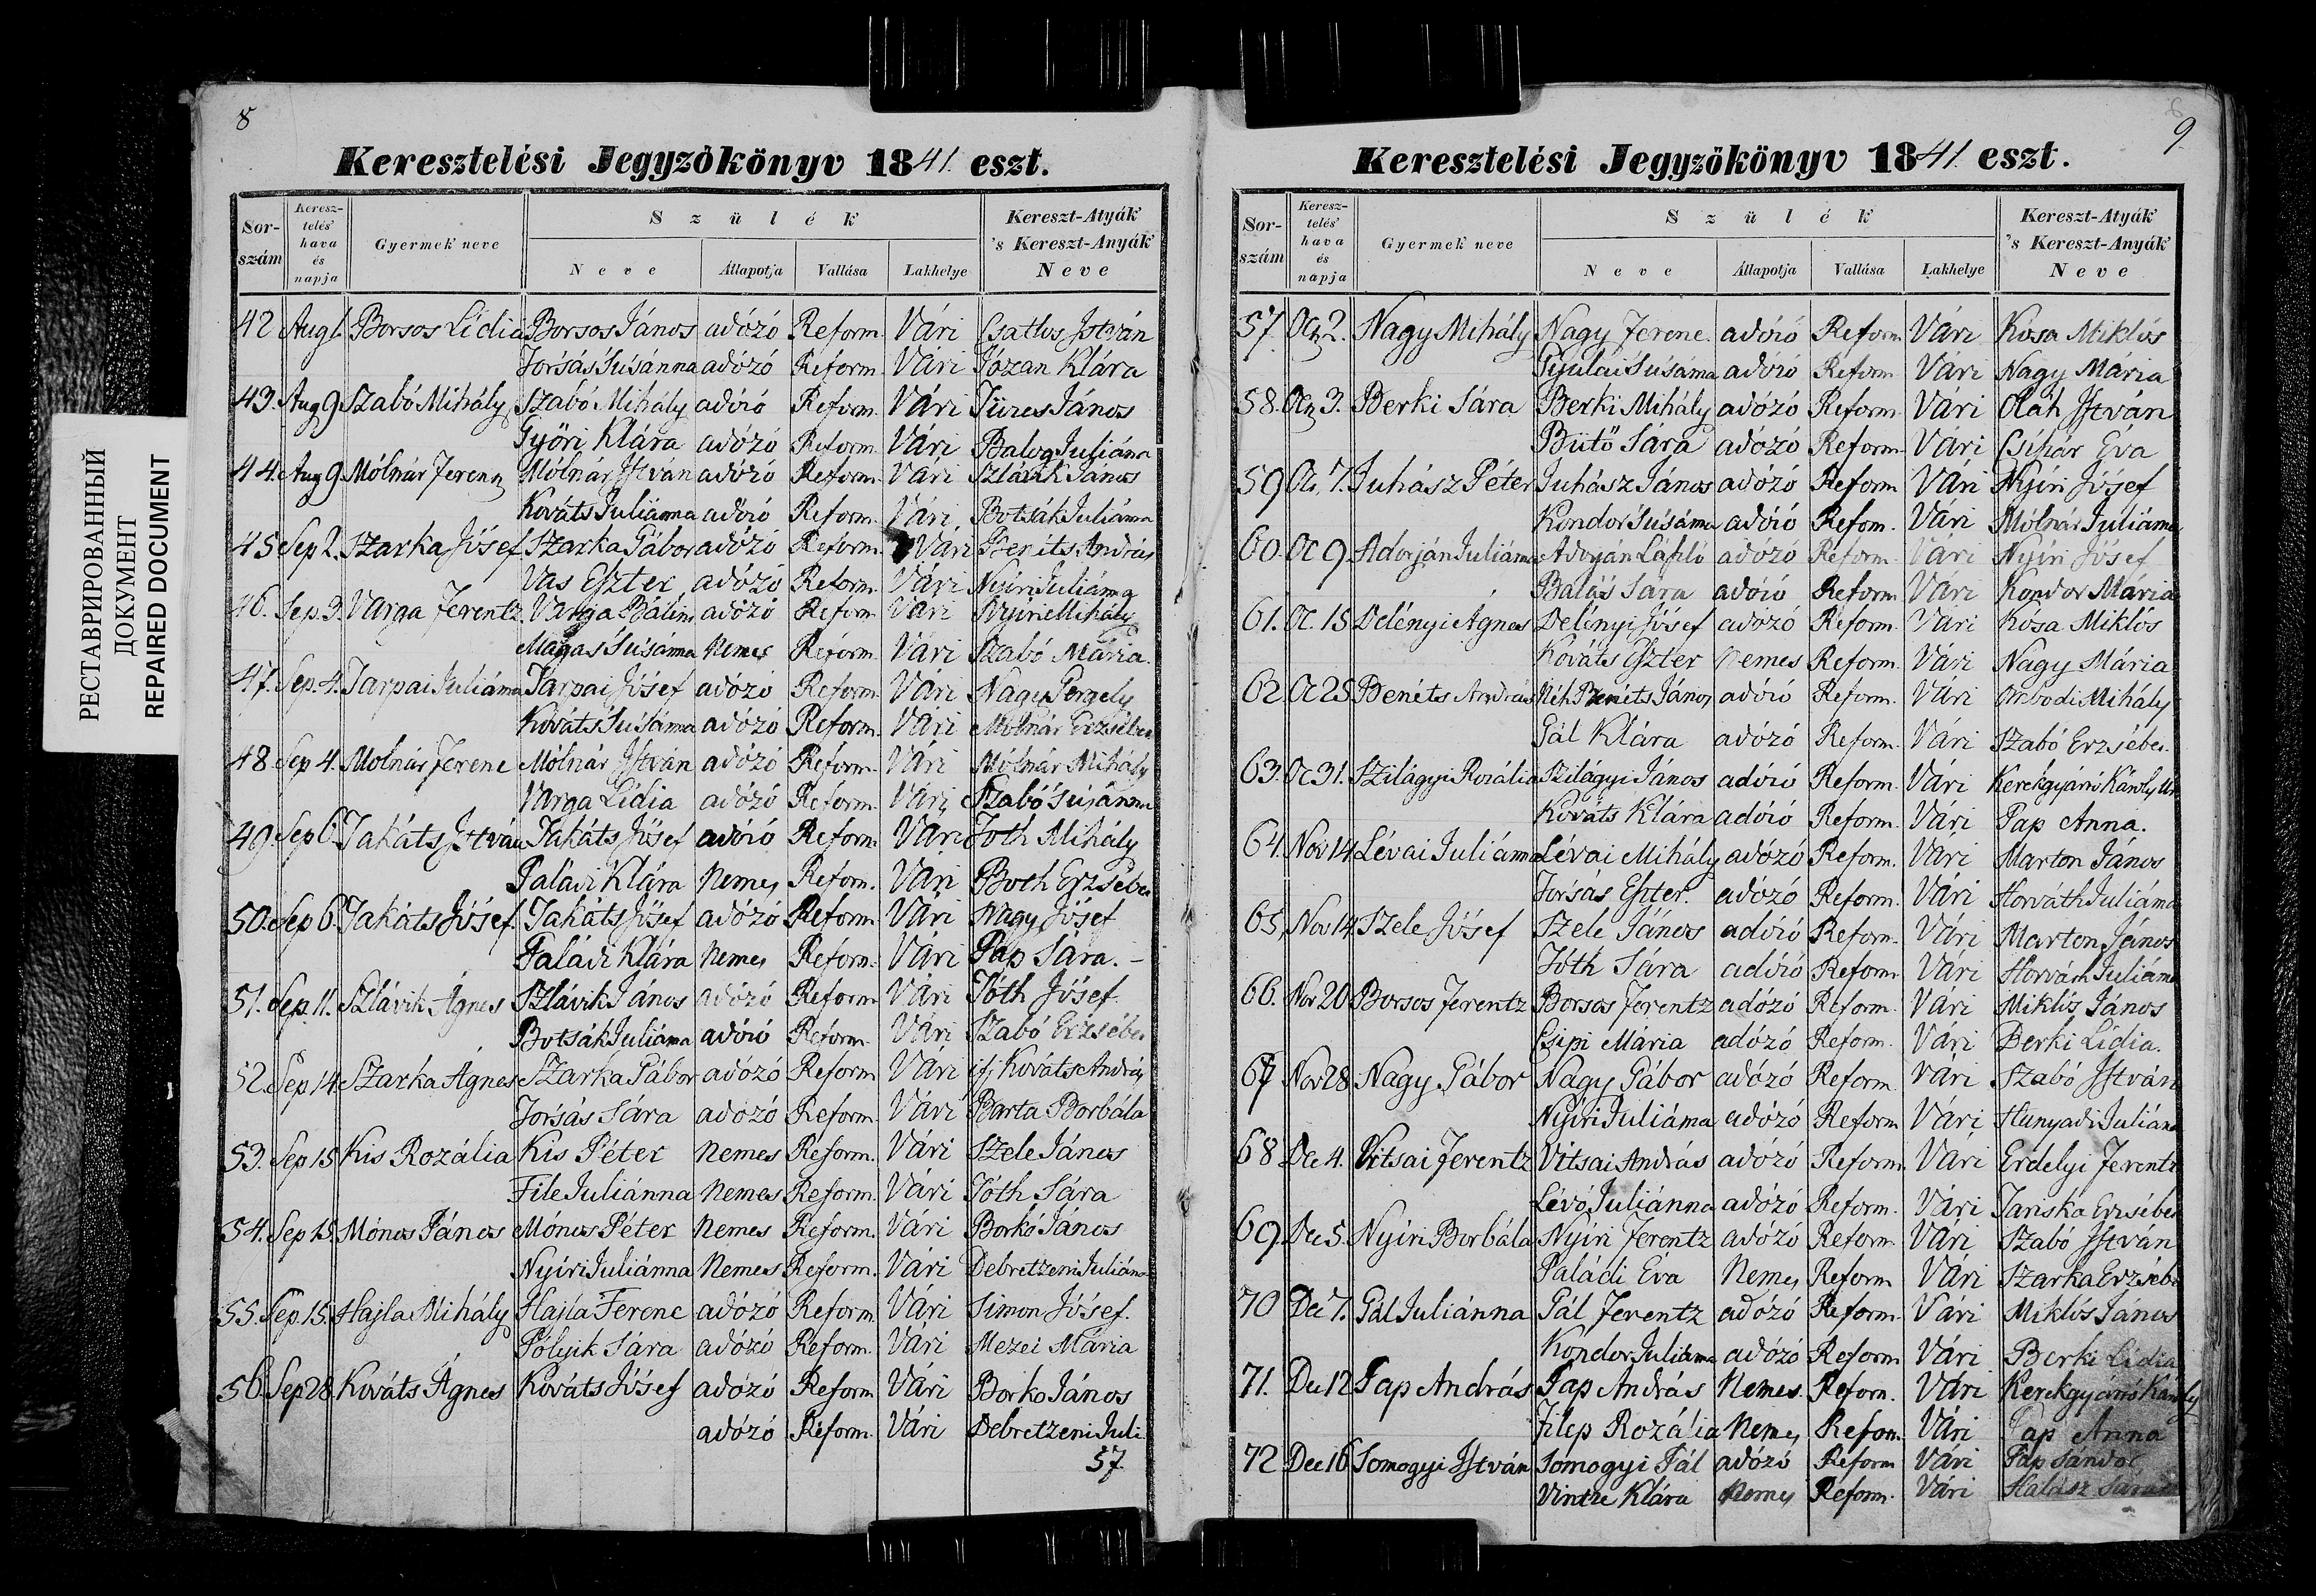 РЕСТАВРИРОВАННЫЙ
ДОКУМЕНТ
REPAIRED DOCUMENT
8
Keresztelési Jegyzőkönyv 1841. eszt.
Sor-szám Keresz-telés' hava és napja Gyermek neve Szülék Kereszt-Atyák 's Kereszt-Anyák Neve
Neve Állapotja Vallása Lakhelye
42 Aug 1. Borsos Lídia Borsos János adózó Reform. Vári Csatlos István
Forsás Susánna adózó Reform. Vári Józan Klára
43. Aug 9 Szabó Mihály Szabó Mihály adózó Reform. Vári Füzes János
Győri Klára adózó Reform. Vári Balog Juliána
44. Aug 9. Mólnár Ferenn Mólnár István adózó Reform. Vári Szlávik János
Kováts Juliánna adózó Reform. Vári Botsák Juliánna
45 Sep 2. Szarka Jósef Szarka Gábor adózó Reform. Vári Benits András
Vas Eszter adózó Reform. Vári Nyíri Juliánna
46. Sep. 3. Varga Ferentz Varga Bálint adózó Reform. Vári Nyíri Mihály
Magas Susánna Nemes Reform. Vári Szabó Mária.
47. Sep. 4. Tarpai Juliánna Tarpai Jósef adózó Reform. Vári Nagy Gergely
Kováts Susánna adózó Reform. Vári Mólnár Erzsébet
48 Sep 4. Molnár Ferenc Mólnár István adózó Reform. Vári Mólnár Mihály
Varga Lídia adózó Reform. Vári Szabó Susánna
49. Sep 6. Takáts István Takáts Jósef adózó Reform. Vári Tóth Mihály
Paládi Klára Nemes Reform. Vári Both Erzsébet
50. Sep 6. Takáts Jósef. Takáts Jósef adózó Reform. Vári Nagy Jósef
Paládi Klára Nemes Reform. Vári Pap Sára. -
51. Sep. 11. Szlávik Ágnes Szlávik János adózó Reform. Vári Tóth Jósef.
Botsák Juliánna adózó Reform. Vári Szabó Erzsébet
52. Sep 14 Szarka Ágnes Szarka Gábor adózó Reform. Vári ifj Kováts András
Forsás Sára adózó Reform. Vári Barta Borbála
53. Sep 15 Kis Rozália Kis Péter Nemes Reform. Vári Szele János
File Juliánna Nemes Reform. Vári Tóth Sára
54. Sep 15. Mónos János Mónos Péter Nemes Reform. Vári Borkó János
Nyíri Juliánna Nemes Reform. Vári Debretzeni Juliána
55. Sep. 15. Hajla Mihály Hajla Ferenc adózó Reform. Vári Simon Jósef.
Pólyik Sára adózó Reform. Vári Mezei Mária
56 Sep 28. Kováts Ágnes Kováts Jósef adózó Reform. Vári Borko János
adózó Reform. Vári Debretzeni Juli
57
9
Keresztelési Jegyzőkönyv 1841. eszt.
Sor-szám Keresz-telés' hava és napja Gyermek neve Szülék Kereszt-Atyák 's Kereszt-Anyák Neve
Neve Állapotja Vallása Lakhelye
57. Oct 2. Nagy Mihály Nagy Ferenc. adózó Reform. Vári Kósa Miklós
Gyulai Susánna adózó Reform. Vári Nagy Mária
58. Oct 3. Berki Sára Berki Mihály adózó Reform. Vári Oláh István
Bütő Sára adózó Reform. Vári Csíhár Éva
59 Oc. 7. Juhász Péter Juhász János adózó Reform. Vári Nyíri Jósef
Kondor Susánna adózó Refom. Vári Mólnár Juliánna
60. Oc 9 Adorján Juliánna Adorján László adózó Reform. Vári Nyíri Jósef
Balás Sára adózó Reform. Vári Kondor Mária
61. Oc. 15 Delényi Ágnes Delényi Jósef adózó Reform. Vári Kósa Miklós
Kováts Eszter Nemes Reform. Vári Nagy Mária
62 Oc 25 Benéts András Néh Benéts János adózó Reform. Vári Orbodi Mihály
Gál Klára adózó Reform. Vári Szabó Erzsébet.
63. Oc 31. Szilágyi Rozália Szilágyi János adózó Reform. Vári Kerekgyártó Károly Ur
Kováts Klára adózó Reform. Vári Pap Anna.
64. Nov 14 Lévai Juliánna Lévai Mihály adózó Reform. Vári Marton János
Forsás Eszter. adózó Reform. Vári Horváth Juliánna
65, Nov 14 Szele Jósef Szele János adózó Reform. Vári Marton János
Tóth Sára adózó Reform. Vári Horváth Juliánna
66. Nov 20 Borsos Ferentz Borsos Ferentz adózó Reform. Vári Miklós János
Csipi Mária adózó Reform. Vári Berki Lídia.
67 Nov 28. Nagy Gábor Nagy Gábor adózó Reform. Vári Szabó István
Nyíri Juliánna adózó Reform. Vári Hunyadi Juliána
68 Dec 4. Vitsai Ferentz Vitsai András adózó Reform. Vári Erdelyi Ferentz
Lévó Juliánna adózó Reform. Vári Janiska Erzsébet
69 Dec 5. Nyíri Borbála Nyíri Ferentz adózó Reform. Vári Szabó István
Paládi Éva Nemes Reform. Vári Szarka Erzsébet
70 Dec 7. Gál Juliánna Gál Ferentz adózó Reform. Vári Miklós János
Kondor Juliánna adózó Reform. Vári Berki Lídia
71. Dec 12 Pap András Pap András Nemes. Reform. Vári Kerekgyártó Károly
Filep Rozália Nemes Reform. Vári Pap Anna
72 Dec 16 Somogyi István Somogyi Pál adózó Reform Vári Pap Sándor
Vintze Klára Nemes Reform. Vári Halász Sára